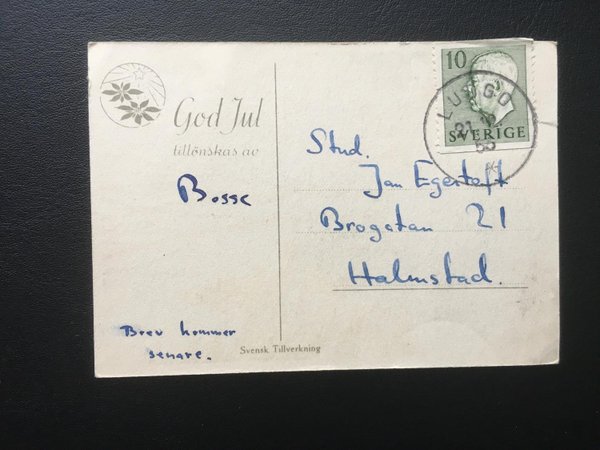 God Jul
tillönskas av
Bosse
Brev kommer
senare.
Svensk Tillverkning
10
SVERIGE
LUGGO
Stud.
Jan Egerteft
Brogatan 21
Halmstad.